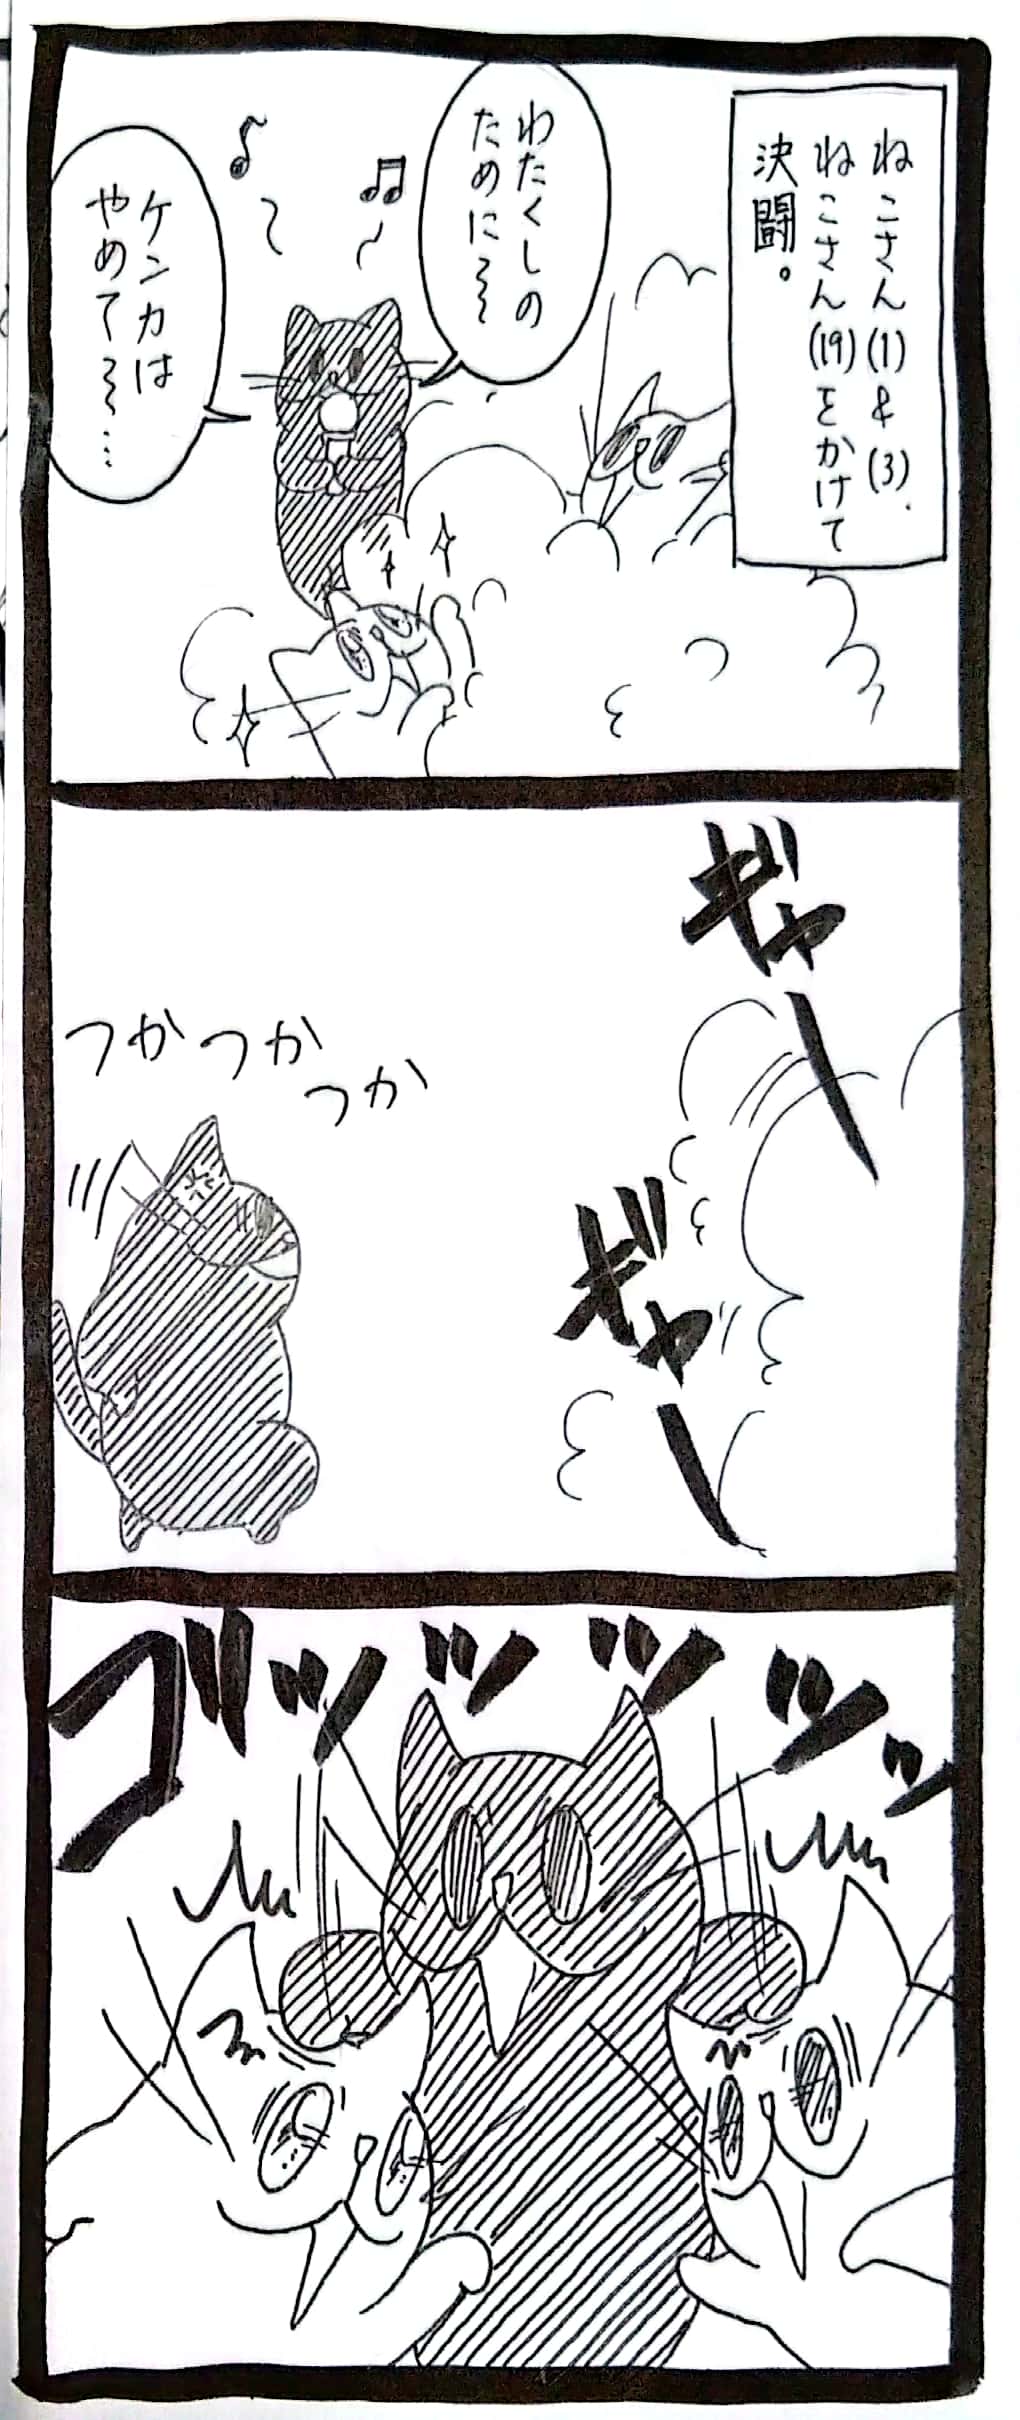 ねこさん(1)&(3).
ねこさん(19)をかけて
決闘。
わたくしの
ために~~
ケンカは
やめて~~…
ギャー
ギャー
つかつか
つか
ゴッッッッッ